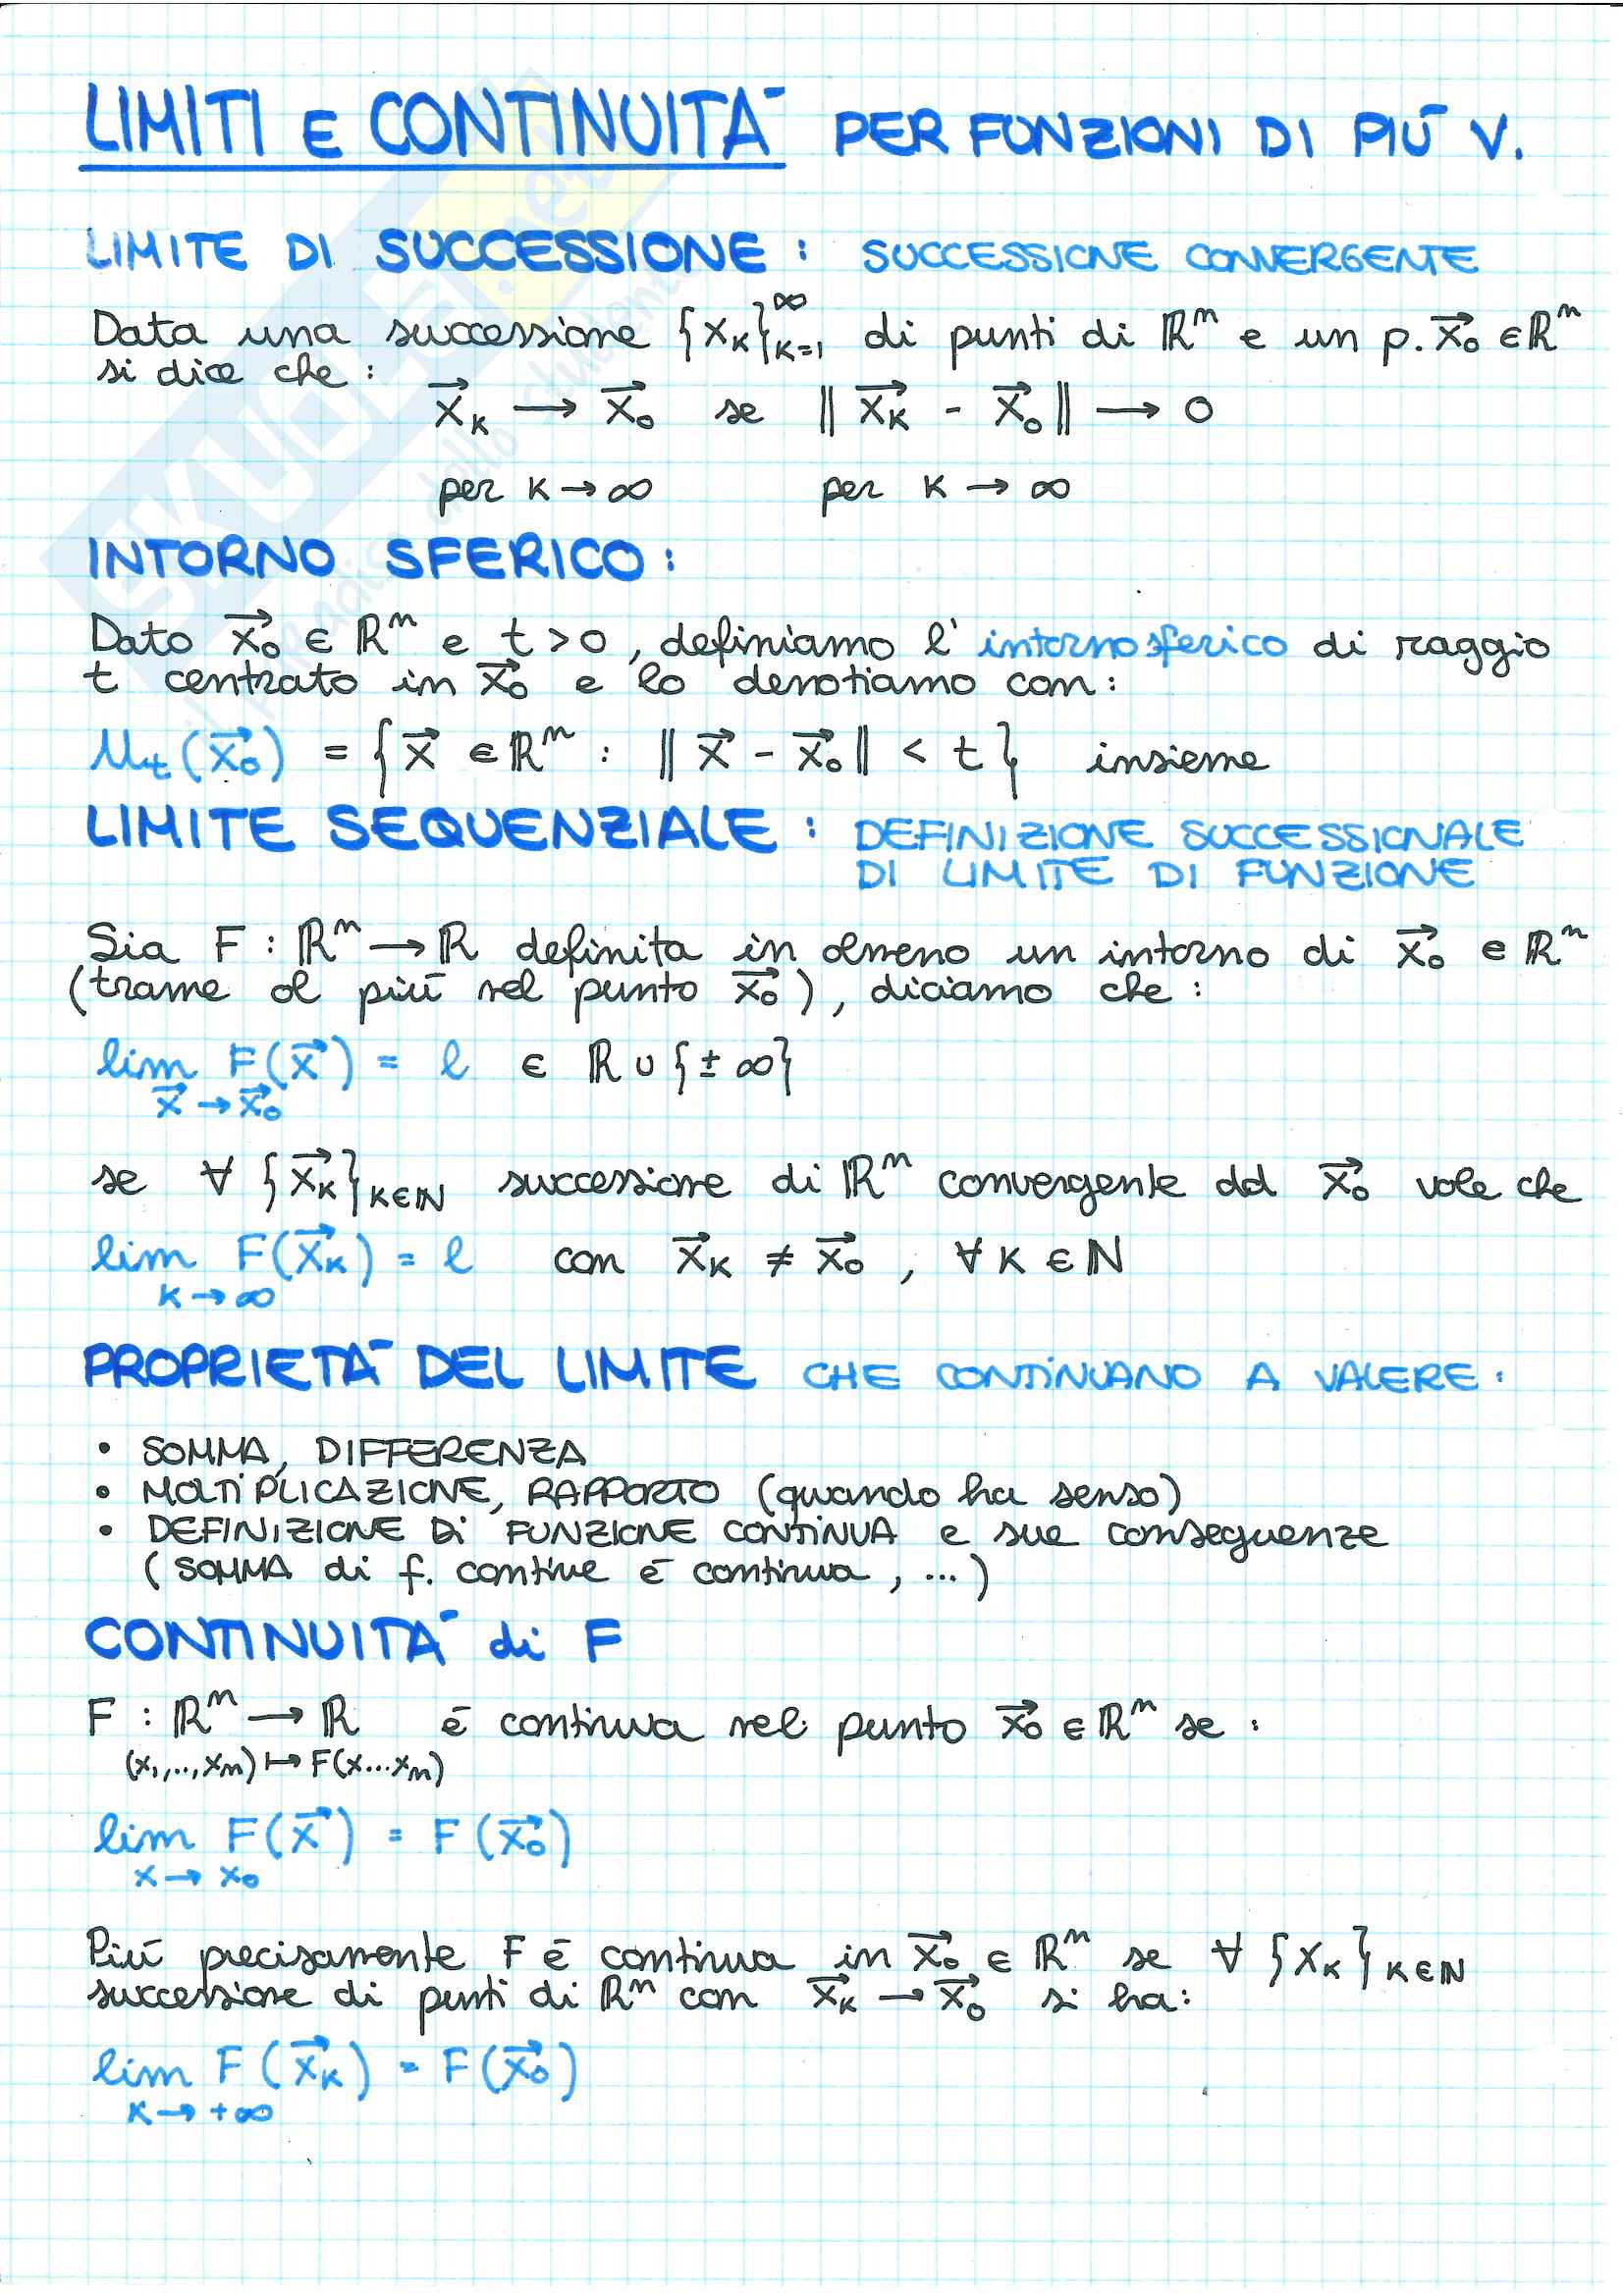 LIMITI E CONTINUITÀ PER FUNZIONI DI PIÙ V.
LIMITE DI SUCCESSIONE : SUCCESSIONE CONVERGENTE
Data una successione {x_K}_{K=1}^∞ di punti di ℝⁿ e un p. x⃗₀ ∈ ℝⁿ
si dice che :
x⃗_K → x⃗₀ se ‖ x⃗_K - x⃗₀ ‖ → 0
per K → ∞ per K → ∞
INTORNO SFERICO :
Dato x⃗₀ ∈ ℝⁿ e t > 0 , definiamo l' intorno sferico di raggio
t centrato in x⃗₀ e lo denotiamo con :
U_t (x⃗₀) = { x⃗ ∈ ℝⁿ : ‖ x⃗ - x⃗₀ ‖ < t } insieme
LIMITE SEQUENZIALE : DEFINIZIONE SUCCESSIONALE
DI LIMITE DI FUNZIONE
Sia F : ℝⁿ → ℝ definita in almeno un intorno di x⃗₀ ∈ ℝⁿ
(trame al più nel punto x⃗₀ ) , diciamo che :
lim F(x⃗) = l ∈ ℝ ∪ {± ∞}
x⃗ → x⃗₀
se ∀ {x⃗_K}_{K∈ℕ} successione di ℝⁿ convergente ad x⃗₀ vale che
lim F(x⃗_K) = l con x⃗_K ≠ x⃗₀ , ∀ K ∈ ℕ
K → ∞
PROPRIETÀ DEL LIMITE CHE CONTINUANO A VALERE :
• SOMMA, DIFFERENZA
• MOLTIPLICAZIONE, RAPPORTO (quando ha senso)
• DEFINIZIONE Di FUNZIONE CONTINUA e sue conseguenze
( SOMMA di f. continue è continua , ... )
CONTINUITÀ di F
F : ℝⁿ → ℝ è continua nel punto x⃗₀ ∈ ℝⁿ se :
(x₁,..,xₙ) ↦ F(x...xₙ)
lim F(x⃗) = F(x⃗₀)
x → x₀
Più precisamente F è continua in x⃗₀ ∈ ℝⁿ se ∀ {x_K}_{K∈ℕ}
successione di punti di ℝⁿ con x⃗_K → x⃗₀ si ha :
lim F(x⃗_K) = F(x⃗₀)
K → +∞